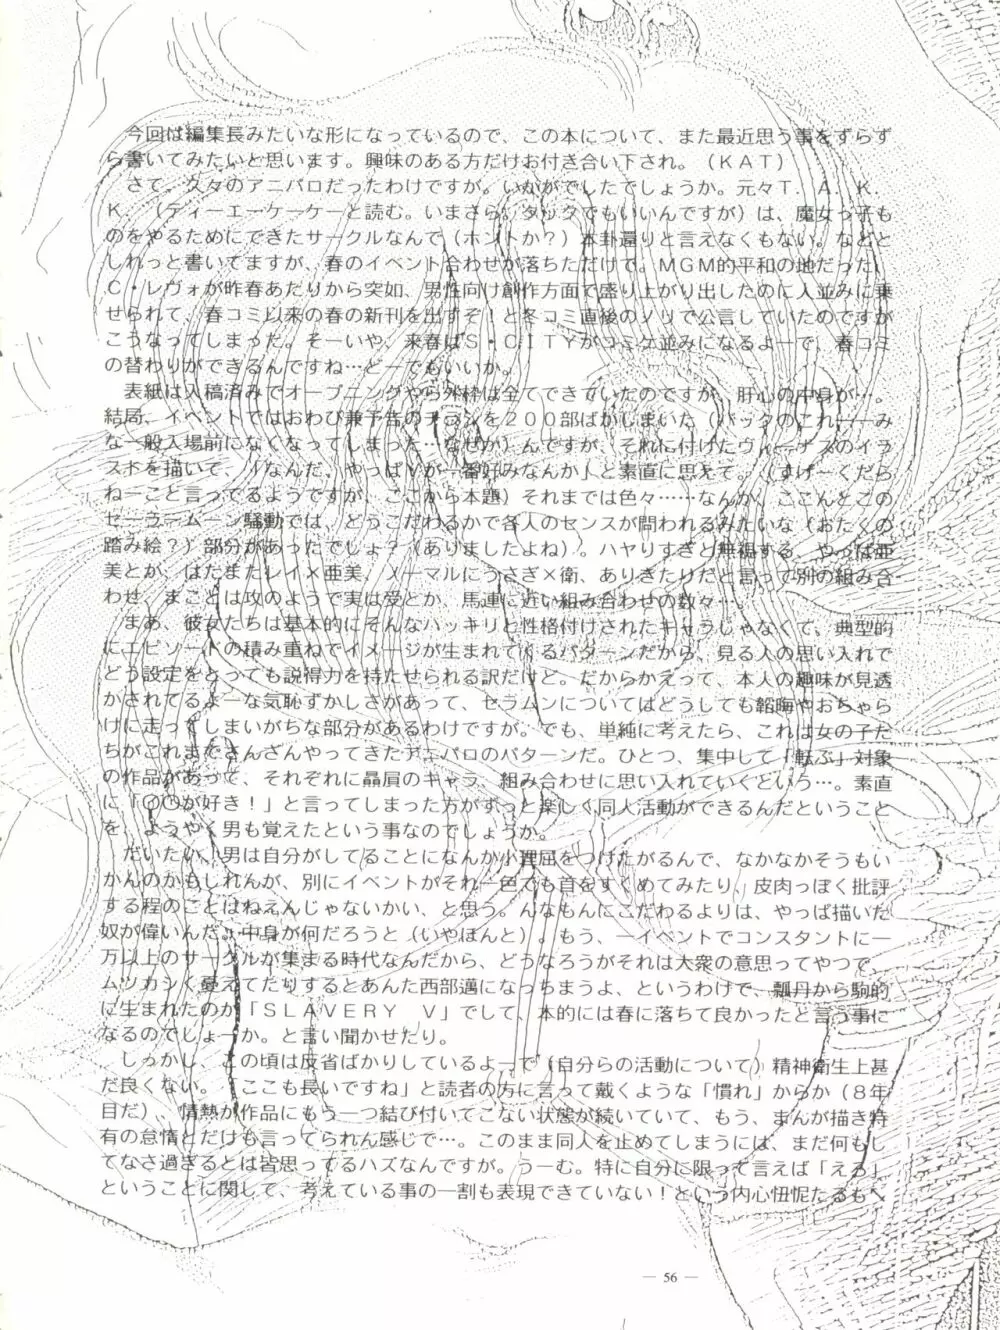 今回は編集長みたいな形になっているので、この本について、また最近思う事をずらず
ら書いてみたいと思います。興味のある方だけお付き合い下され。（ＫＡＴ）
さて、久々のアニパロだったわけですが。いかがでしたでしょうか。元々Ｔ．Ａ．Ｋ．
Ｋ．（ティーエーケーケーと読む。いまさら。タックでもいいんですが）は、魔女っ子も
のをやるためにできたサークルなんで（ホントか？）本卦還りと言えなくもない。などと
しれっと書いてますが、春のイベント合わせが落ちただけで。ＭＧＭ的平和の地だった、
Ｃ・レヴォが昨春あたりから突如、男性向け創作方面で盛り上がり出したのに人並みに乗
せられて、春コミ以来の春の新刊を出すぞ！と冬コミ直後のノリで公言していたのですが
こうなってしまった。そーいや、来春はＳ・ＣＩＴＹがコミケ並みになるよーで、春コミ
の替わりができるんですね…どーでもいいか。
表紙は入稿済みでオープニングやら外枠は全てできていたのですが、肝心の中身が…。
結局、イベントではおわび兼予告のチラシを２００部ばかしまいた（バックのこれ――み
な一般入場前になくなってしまった…なぜか）んですが、それに付けたヴィーナスのイラ
ストを描いて、「なんだ、やっぱＶが一番好みなんか」と素直に思えて。（すげーくだら
ねーこと言ってるようですが、ここから本題）それまでは色々……なんか、ここんとこの
セーラームーン騒動では、どうこだわるかで各人のセンスが問われるみたいな（おたくの
踏み絵？）部分があったでしょ？（ありましたよね）。ハヤりすぎと無視する、やっぱ亜
美とか、はたまたレイ×亜美、ノーマルにうさぎ×衛、ありきたりだと言って別の組み合
わせ、まことは攻のようで実は受とか、馬連に近い組み合わせの数々…。
まあ、彼女たちは基本的にそんなハッキリと性格付けされたキャラじゃなくて、典型的
にエピソードの積み重ねでイメージが生まれてくるパターンだから、見る人の思い入れで
どう設定をとっても説得力を持たせられる訳だけど。だからかえって、本人の趣味が見透
かされてるよーな気恥ずかしさがあって、セラムンについてはどうしても韜晦やおちゃら
けに走ってしまいがちな部分があるわけですが。でも、単純に考えたら、これは女の子た
ちがこれまでさんざんやってきたアニパロのパターンだ。ひとつ、集中して「転ぶ」対象
の作品があって、それぞれに贔屓のキャラ、組み合わせに思い入れていくという…。素直
に「○○が好き！」と言ってしまった方がずっと楽しく同人活動ができるんだということ
を、ようやく男も覚えたという事なのでしょうか。
だいたい、男は自分がしてることになんか小理屈をつけたがるんで、なかなかそうもい
かんのかもしれんが、別にイベントがそれ一色でも首をすくめてみたり、皮肉っぽく批評
する程のことはねえんじゃないかい、と思う。んなもんにこだわるよりは、やっぱ描いた
奴が偉いんだ、中身が何だろうと（いやほんと）。もう、一イベントでコンスタントに一
万以上のサークルが集まる時代なんだから、どうなろうがそれは大衆の意思ってやつで、
ムツカシく憂えてたりするとあんた西部邁になっちまうよ、というわけで、瓢丹から駒的
に生まれたのが「ＳＬＡＶＥＲＹ　Ｖ」でして、本的には春に落ちて良かったと言う事に
なるのでしょーか。と言い聞かせたり。
しっかし、この頃は反省ばかりしているよーで（自分らの活動について）精神衛生上甚
だ良くない。「ここも長いですね」と読者の方に言って戴くような「慣れ」からか（８年
目だ）、情熱が作品にもう一つ結び付いてこない状態が続いていて、もう、まんが描き特
有の怠惰とだけも言ってられん感じで…。このまま同人を止めてしまうには、まだ何もし
てなさ過ぎるとは皆思ってるハズなんですが。うーむ。特に自分に限って言えば「えろ」
ということに関して、考えている事の一割も表現できていない！という内心忸怩たるもへ
― 56 ―